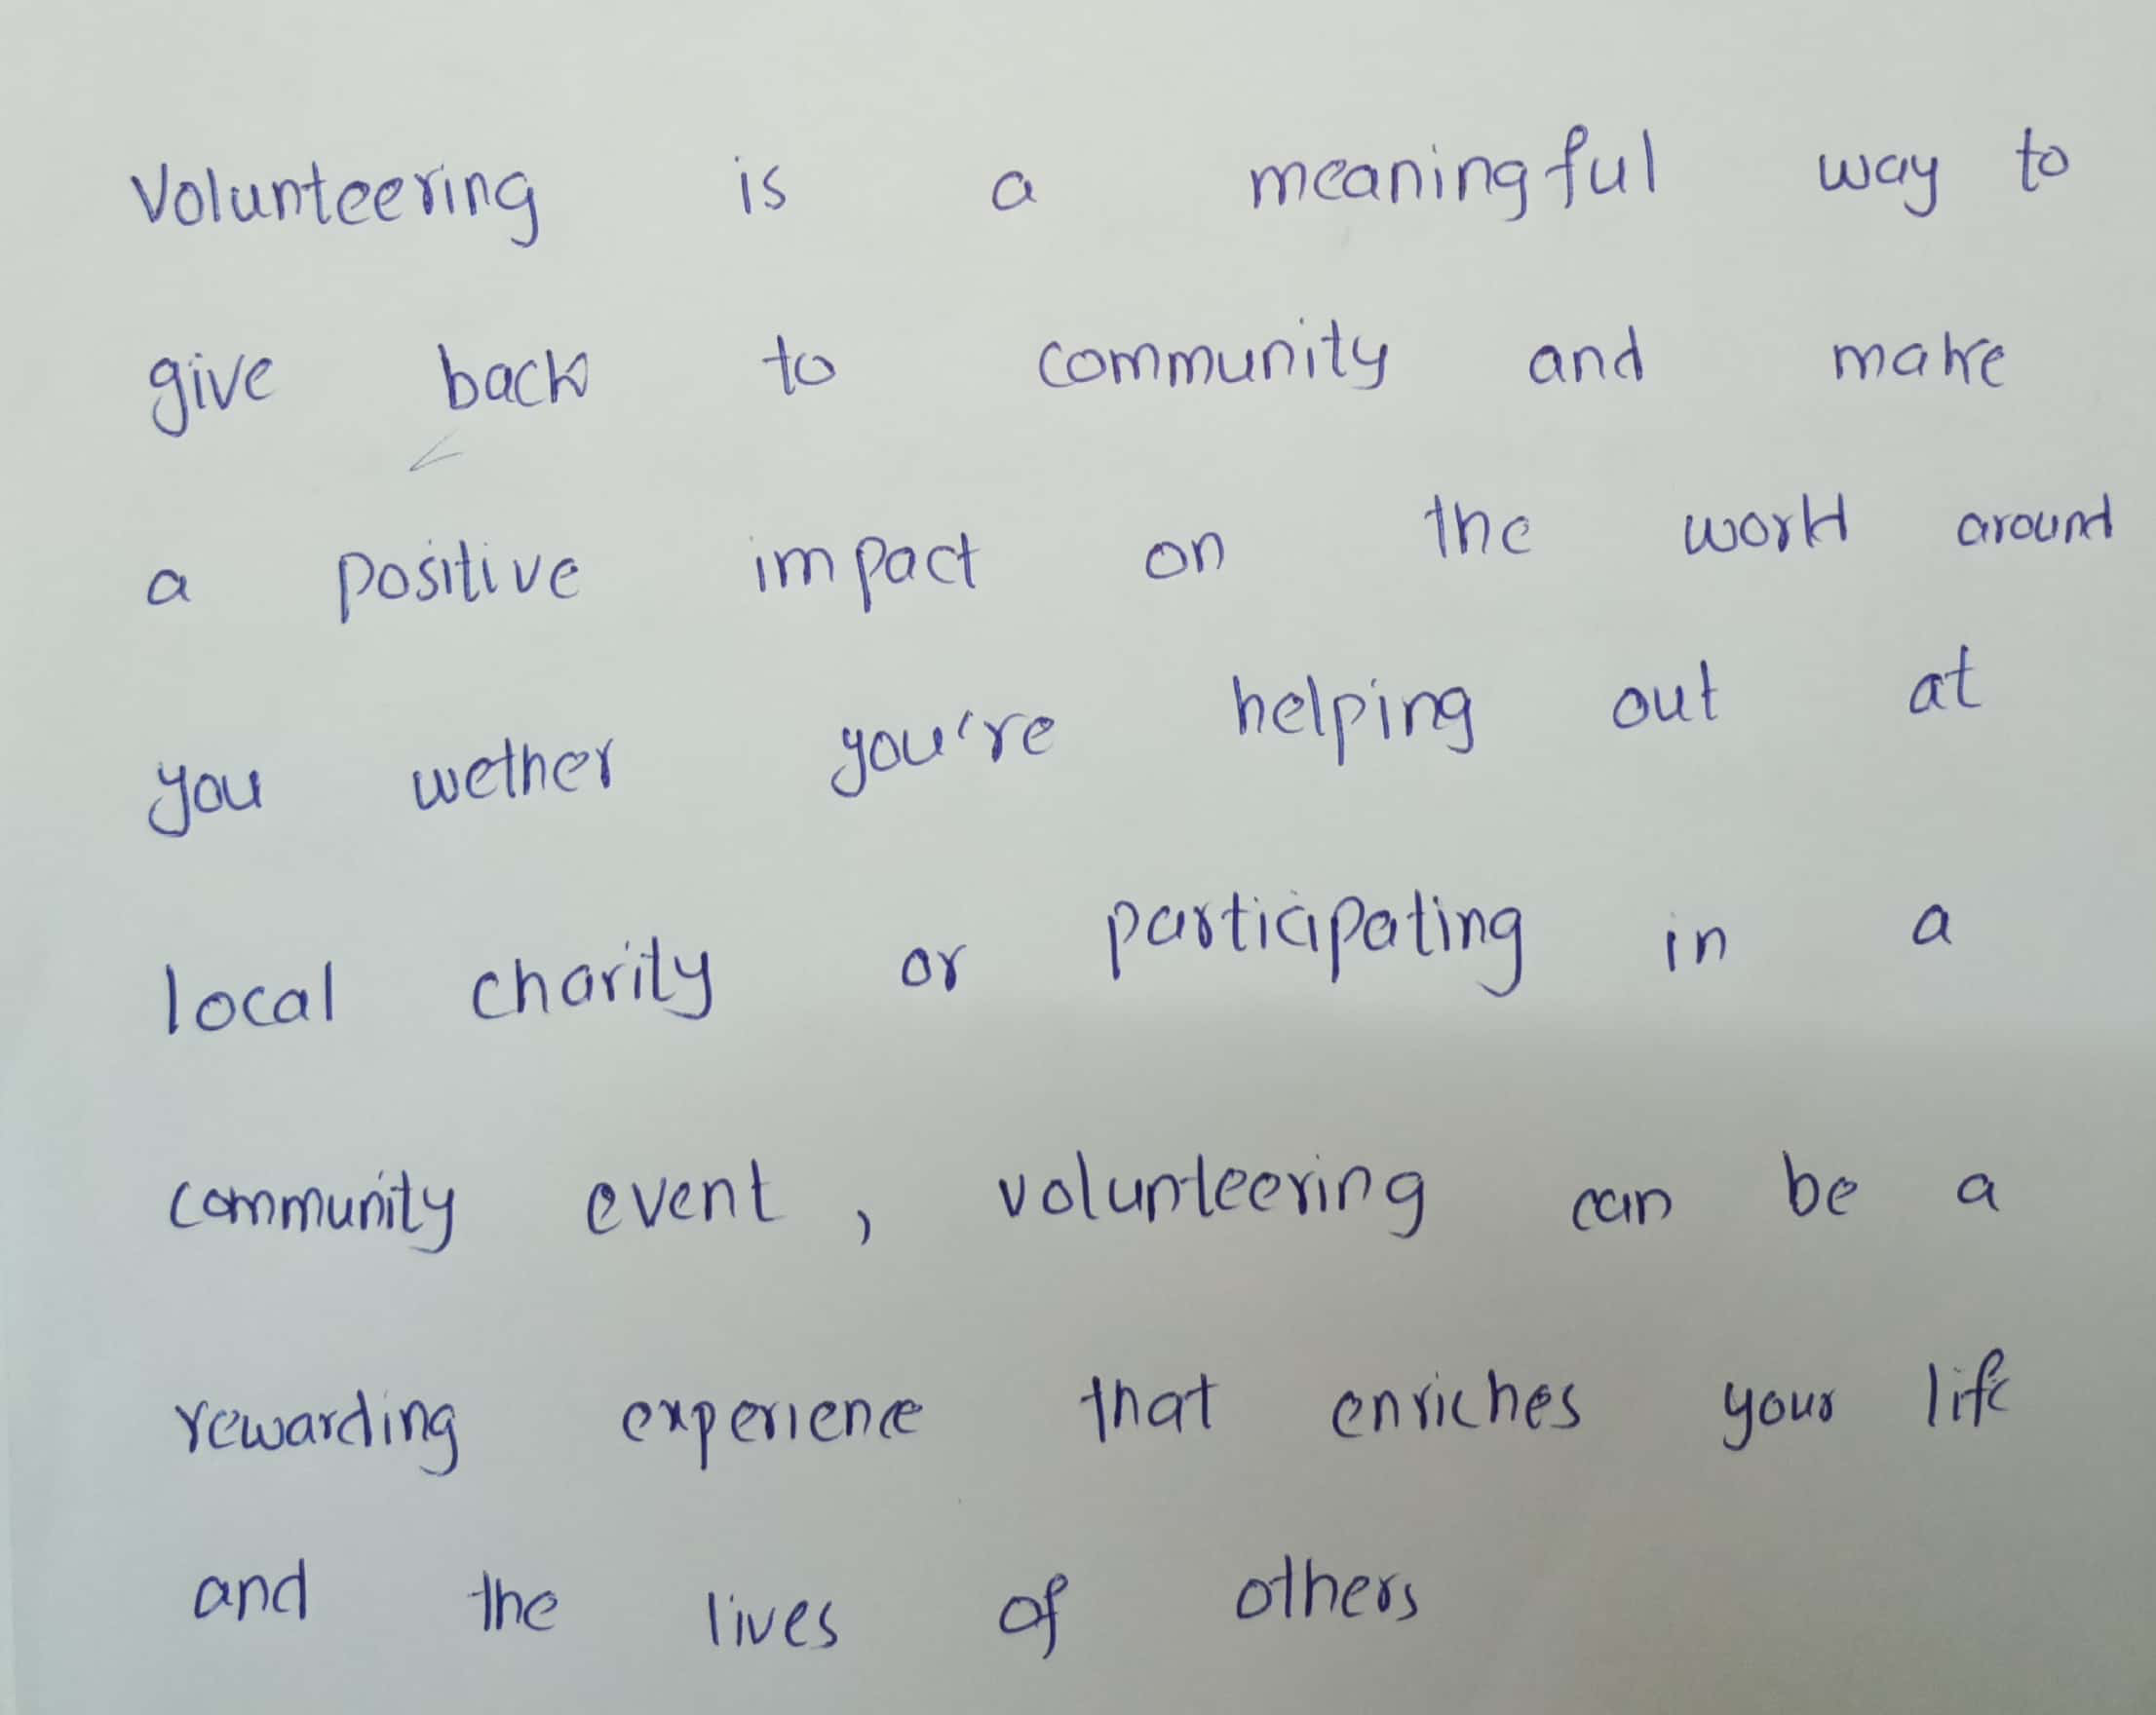 Volunteering is a meaningful way to
give back to community and make
a positive impact on the world around
you wether you're helping out at
local charity or participating in a
community event , volunteering can be a
rewarding experience that enriches your life
and the lives of others